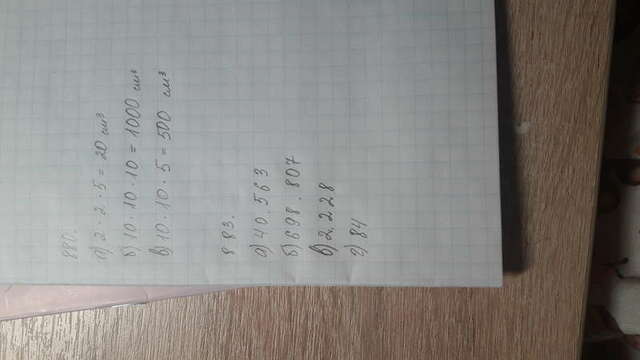 880.
а) 2 · 2 · 5 = 20 см³
б) 10 · 10 · 10 = 1000 см³
в) 10 · 10 · 5 = 500 см³
883.
а) 40.563
б) 698.807
в) 2.228
г) 84